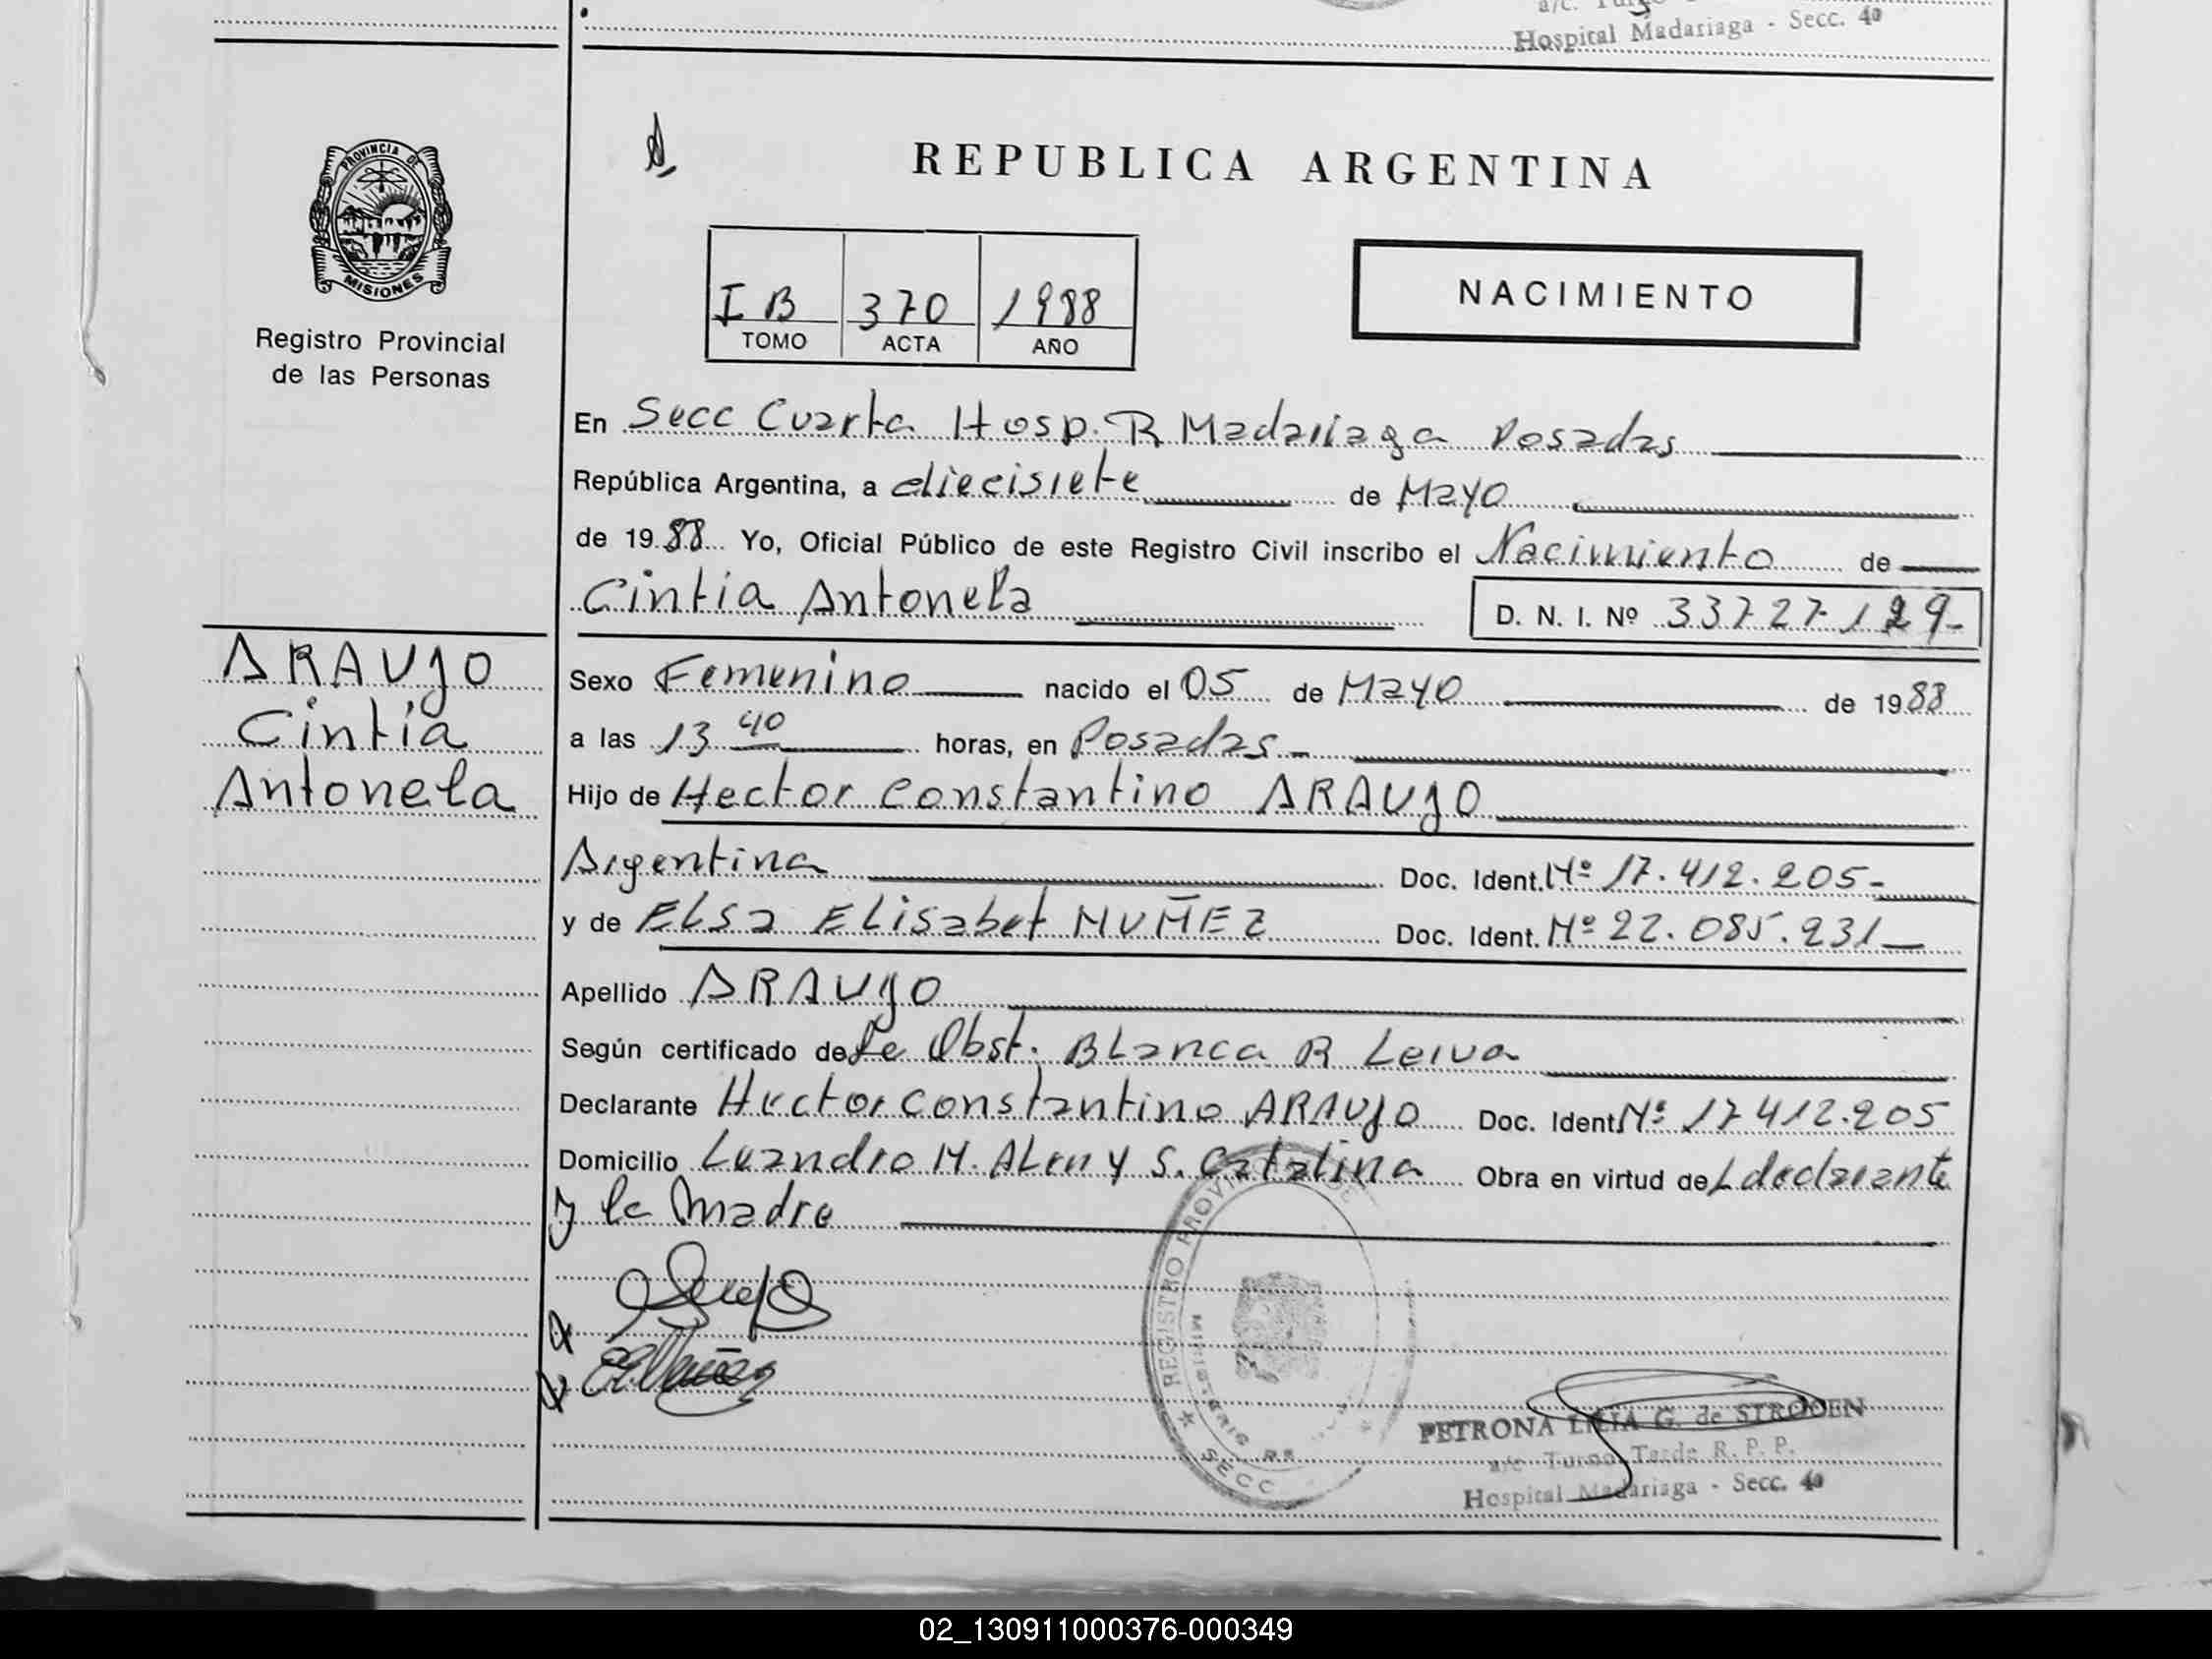 a/c. Turno
Hospital Madariaga - Secc. 4a
PROVINCIA DE
MISIONES
Registro Provincial
de las Personas
REPUBLICA ARGENTINA
I B 370 1988
TOMO ACTA AÑO
NACIMIENTO
En Secc Cuarta Hosp. R Madariaga Posadas
República Argentina, a diecisiete de Mayo
de 1988 Yo, Oficial Público de este Registro Civil inscribo el Nacimiento de
Cintia Antonela D. N. I. Nº 33727129-
ARAUJO
Cintia
Antonela
Sexo Femenino nacido el 05 de Mayo de 1988
a las 13 40 horas, en Posadas-
Hijo de Hector Constantino ARAUJO
Argentina Doc. Ident. Nº 17.412.205-
y de ELSa ELisabet NUÑEZ Doc. Ident. Nº 22.085.231-
Apellido ARAUJO
Según certificado de la Obst. BLanca R Leiva
Declarante Hector Constantino ARAUJO Doc. Ident. Nº 17412.205
Domicilio Leandro N. ALen y S. Catalina Obra en virtud del declarante
y la Madre
REGISTRO PROVINCIAL DE
SECC
PETRONA LILIA G. de STROOEN
a/c Turno Tarde R. P. P.
Hospital Madariaga - Secc. 4a
02_130911000376-000349